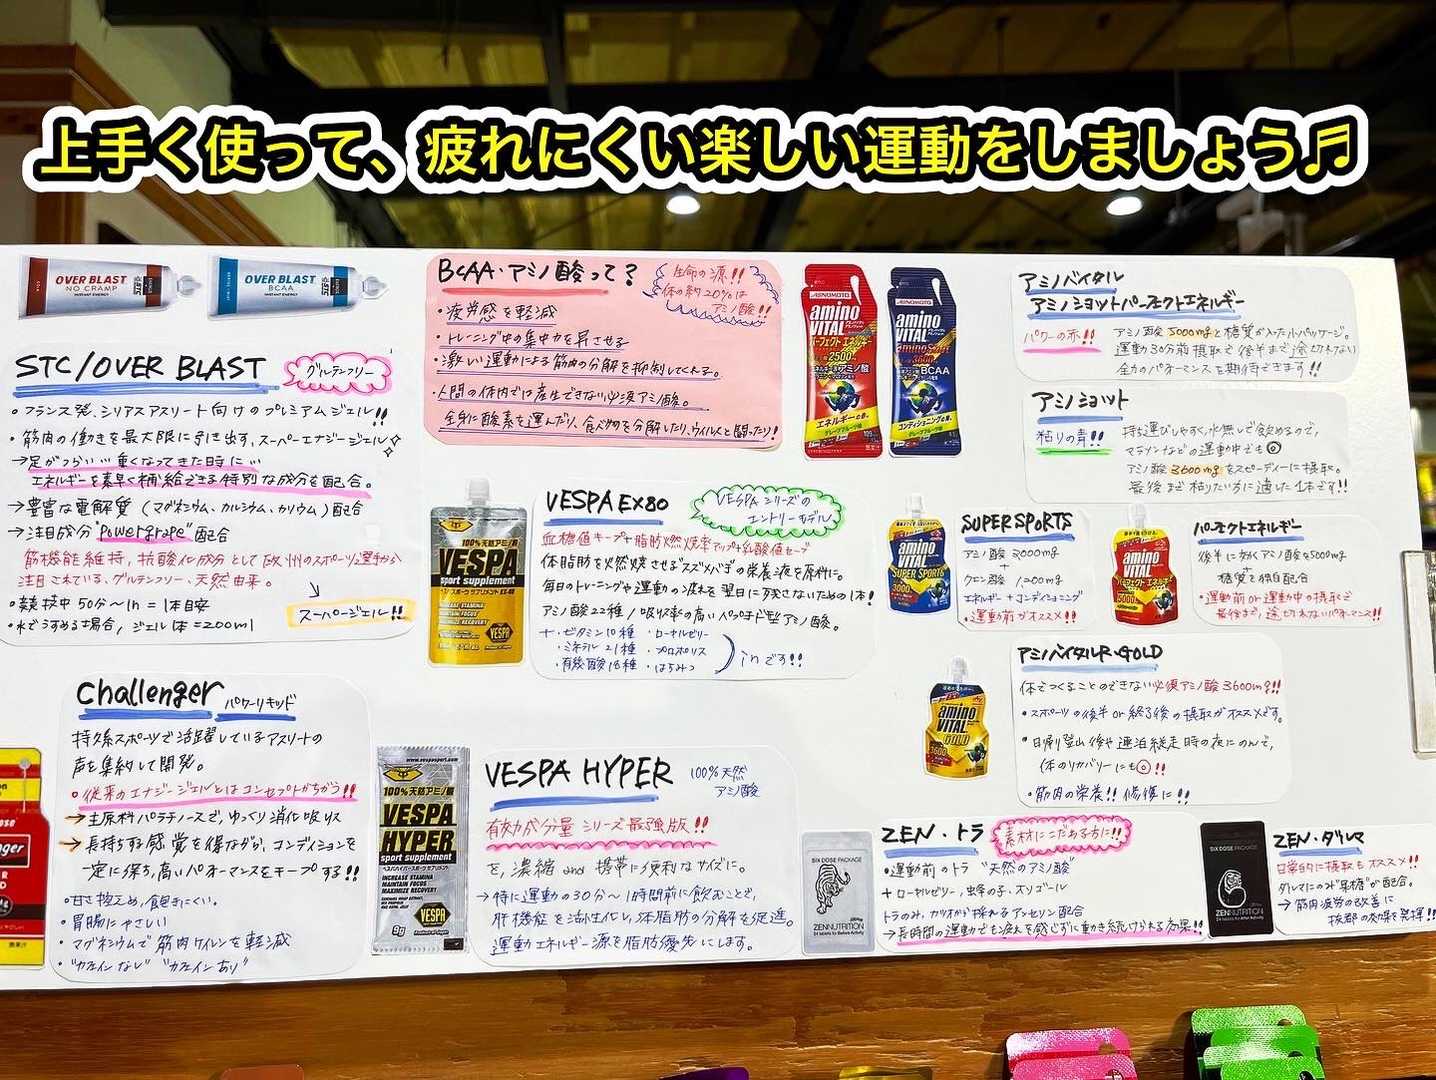 上手く使って、疲れにくい楽しい運動をしましょう♬
OVER BLAST
NO CRAMP
INSTANT ENERGY
OVER BLAST
BCAA
INSTANT ENERGY
STC/OVER BLAST
グルテンフリー
・フランス発、シリアスアスリート向けのプレミアムジェル!!
・筋肉の働きを最大限に引き出す、スーパーエナジージェル
→足がつらい…重くなってきた時に…
エネルギーを素早く補給できる特別な成分を配合。
→豊富な電解質(マグネシウム、カルシウム、カリウム)配合
→注目成分"Powergrape"配合
筋機能維持、抗酸化成分として欧州のスポーツ選手から
注目されている、グルテンフリー、天然由来。
・競技中50分〜1h=1本目安
・水でうすめる場合、ジェル1本=200ml
スーパージェル!!
BCAA・アミノ酸って?
生命の源!!
体の約20%は
アミノ酸!!
・疲労感を軽減
・トレーニング中の集中力を昇させる
・激しい運動による筋肉の分解を抑制してくれる。
・人間の体内では産生できない必須アミノ酸。
全身に酸素を運んだり、食べ物を分解したり、ウイルスと闘ったり!
AJINOMOTO
amino
VITAL
パーフェクトエネルギー
2500
エネルギーの赤。
グレープフルーツ味
AJINOMOTO
amino
VITAL
3600
BCAA
コンディショニングの青。
グレープフルーツ味
アミノバイタル
アミノショットパーフェクトエネルギー
パワーの赤!!
アミノ酸5000mgと糖質が入った小パッケージ。
運動30分前摂取で後半まで途切れない
全力のパフォーマンスを期待できます!!
アミノショット
粘りの青!!
持ち運びしやすく、水無しで飲めるので、
マラソンなどの運動中でも◎
アミノ酸3600mgをスピーディーに摂取。
最後まで粘りたい方に適した1本です!!
100%天然アミノ酸
VESPA
sport supplement
INCREASE STAMINA
MAINTAIN FOCUS
MAXIMIZE RECOVERY
VESPA
VESPA EX80
VESPAシリーズの
エントリーモデル
血糖値キープ+脂肪燃焼率アップ+乳酸値セーブ
体脂肪を燃焼させるスズメバチの栄養液を原料に。
毎日のトレーニングや運動の疲れを翌日に残さないための1本!
アミノ酸22種/吸収率の高いペプチド型アミノ酸。
+・ビタミン10種 ・ローヤルゼリー
・ミネラル21種 ・プロポリス
・有機酸18種 ・はちみつ
inです!!
amino
VITAL
SUPER SPORTS
3000
SUPER SPORTS
アミノ酸3000mg
+
クエン酸1200mg
エネルギー+コンディショニング
・運動前がオススメ!!
amino
VITAL
パーフェクトエネルギー
5000
パーフェクトエネルギー
後半に効くアミノ酸を5000mg
+
糖質を独自配合
・運動前or運動中の摂取で
最後まで、途切れないパフォーマンス!!
amino
VITAL
GOLD
アミノバイタルR・GOLD
体でつくることのできない必須アミノ酸3600mg!!
・スポーツの後半or終了後の摂取がオススメです。
・日帰り登山後や連泊縦走時の夜にのんで、
体のリカバリーにも◎!!
・筋肉の栄養!!修復に!!
Challenger
パワーリキッド
持久系スポーツで活躍しているアスリートの
声を集約して開発。
・従来のエナジージェルとはコンセプトがちがう!!
→主原料パラチノースで、ゆっくり消化吸収
→長持ちする感覚を得ながら、コンディションを
一定に保ち、高いパフォーマンスをキープする!!
・甘さ控えめ、飽きにくい。
・胃腸にやさしい
・マグネシウムで筋肉ケイレンを軽減
・"カフェインなし""カフェインあり"
www.vespasport.com
100%天然アミノ酸
VESPA
HYPER
sport supplement
INCREASE STAMINA
MAINTAIN FOCUS
MAXIMIZE RECOVERY
VESPA
9g
VESPA HYPER
100%天然
アミノ酸
有効成分量シリーズ最強版!!
を、濃縮and携帯に便利なサイズに。
→特に運動の30分〜1時間前に飲むことで、
肝機能を活性化し、体脂肪の分解を促進。
運動エネルギー源を脂肪優先にします。
SIX DOSE PACKAGE
ZENNUTRITION
ZEN・トラ
素材にこだわる方に!!
・運動前のトラ"天然のアミノ酸"
+ローヤルゼリー、蜂の子、オリゴール
トラのみ、カツオから採れるアンセリン配合
→長時間の運動でも疲れを感じずに動き続けられる効果!!
SIX DOSE PACKAGE
ZENNUTRITION
ZEN・ダルマ
日常的に摂取もオススメ!!
→筋肉疲労の改善に